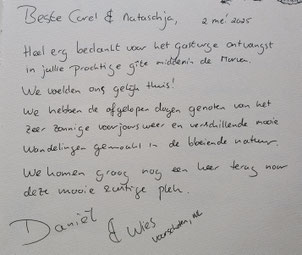 Beste Carel & Natascha, 2 mei 2025
Heel erg bedankt voor het gastvrije ontvangst
in jullie prachtige gîte middenin de Morvan.
We voelden ons gelijk thuis!
We hebben de afgelopen dagen genoten van het
zeer zonnige voorjaarsweer en verschillende mooie
wandelingen gemaakt in de bloeiende natuur.
We komen graag nog een keer terug naar
deze mooie rustige plek.
Daniël & Wies
Voorschoten, NL